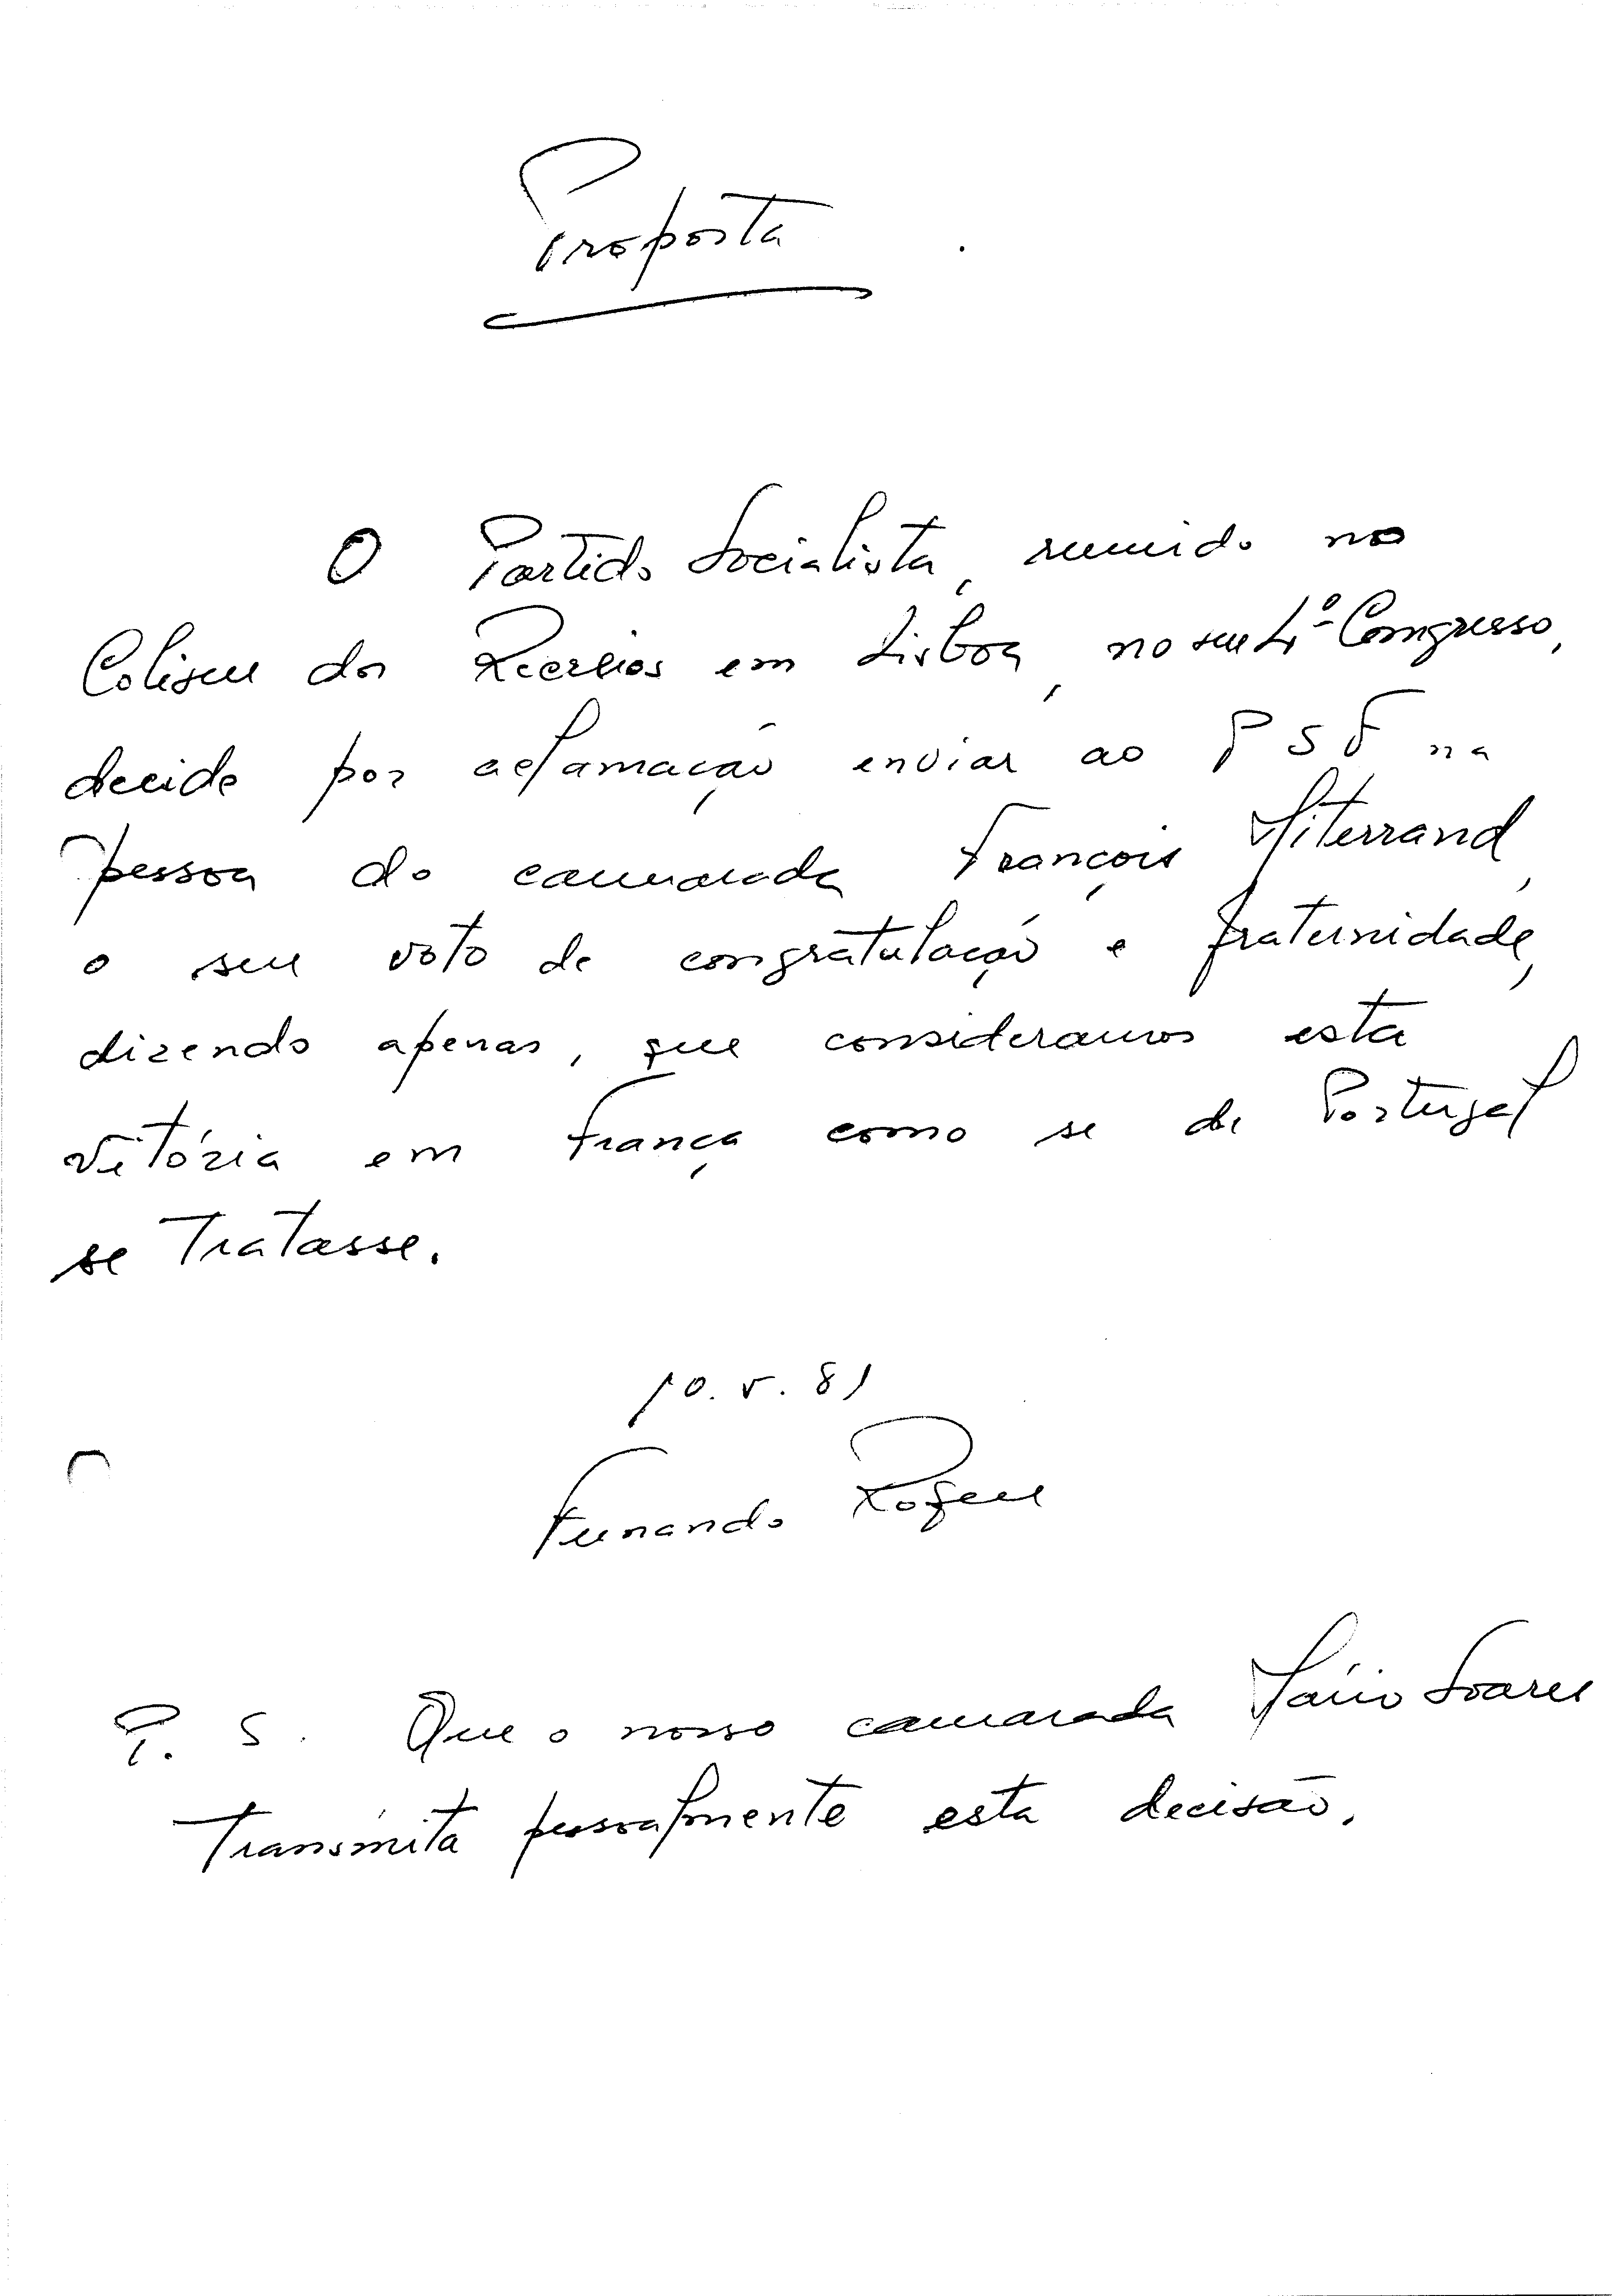 Proposta
O Partido Socialista, reunido no
Coliseu dos Recreios em Lisboa, no seu 4º Congresso,
decide por aclamação enviar ao PSF na
pessoa do camarada François Miterrand,
o seu voto de congratulação e fraternidade,
dizendo apenas, que consideramos esta
vitória em França como se de Portugal
se tratasse.
10.V.81
Fernando
P.S. Que o nosso camarada Mário Soares
transmita pessoalmente esta decisão.